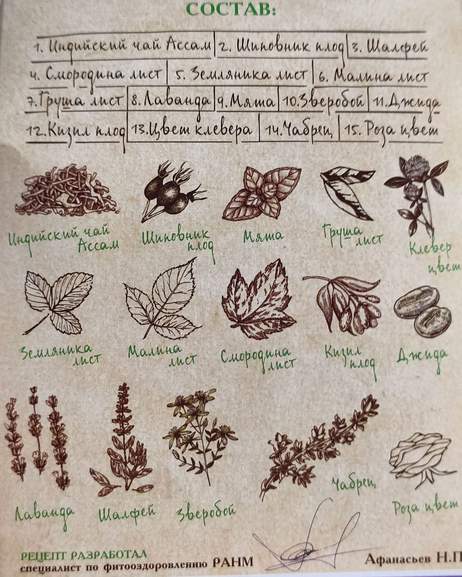 СОСТАВ:
1. Индийский чай Ассам 2. Шиповник плод 3. Шалфей
4. Смородина лист 5. Земляника лист 6. Малина лист
7. Груша лист 8. Лаванда 9. Мята 10. Зверобой 11. Джида
12. Кизил плод 13. Цвет клевера 14. Чабрец 15. Роза цвет
Индийский чай
Ассам
Шиповник
плод
Мята
Груша
лист
Клевер
цвет
Земляника
лист
Малина
лист
Смородина
лист
Кизил
плод
Джида
Лаванда
Шалфей
Зверобой
Чабрец
Роза цвет
РЕЦЕПТ РАЗРАБОТАЛ
специалист по фитооздоровлению РАНМ
Афанасьев Н.П